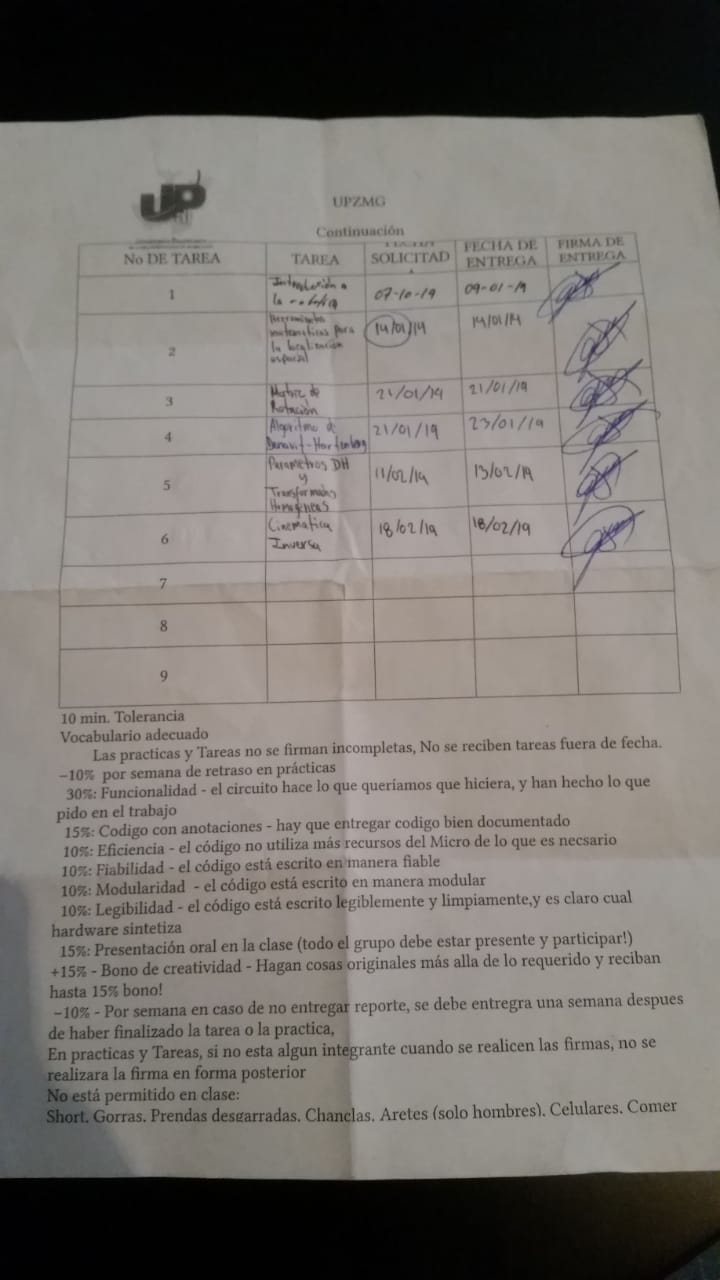 UP
UPZMG
Continuación
No DE TAREA TAREA SOLICITAD FECHA DE ENTREGA FIRMA DE ENTREGA
1 Introducción a la robótica 07-10-19 09-01-19
2 Herramientas matematicas para la localización espacial 14/01/19 14/01/19
3 Matriz de Rotación 21/01/19 21/01/19
4 Algoritmo de Denavit-Hartenberg 21/01/19 23/01/19
5 Parametros DH y Transformadas Homogéneas 11/02/19 13/02/19
6 Cinematica Inversa 18/02/19 18/02/19
7
8
9
10 min. Tolerancia
Vocabulario adecuado
Las practicas y Tareas no se firman incompletas, No se reciben tareas fuera de fecha.
−10% por semana de retraso en prácticas
30%: Funcionalidad - el circuito hace lo que queríamos que hiciera, y han hecho lo que
pido en el trabajo
15%: Codigo con anotaciones - hay que entregar codigo bien documentado
10%: Eficiencia - el código no utiliza más recursos del Micro de lo que es necsario
10%: Fiabilidad - el código está escrito en manera fiable
10%: Modularidad - el código está escrito en manera modular
10%: Legibilidad - el código está escrito legiblemente y limpiamente,y es claro cual
hardware sintetiza
15%: Presentación oral en la clase (todo el grupo debe estar presente y participar!)
+15% - Bono de creatividad - Hagan cosas originales más alla de lo requerido y reciban
hasta 15% bono!
−10% - Por semana en caso de no entregar reporte, se debe entregra una semana despues
de haber finalizado la tarea o la practica,
En practicas y Tareas, si no esta algun integrante cuando se realicen las firmas, no se
realizara la firma en forma posterior
No está permitido en clase:
Short, Gorras, Prendas desgarradas, Chanclas, Aretes (solo hombres), Celulares, Comer